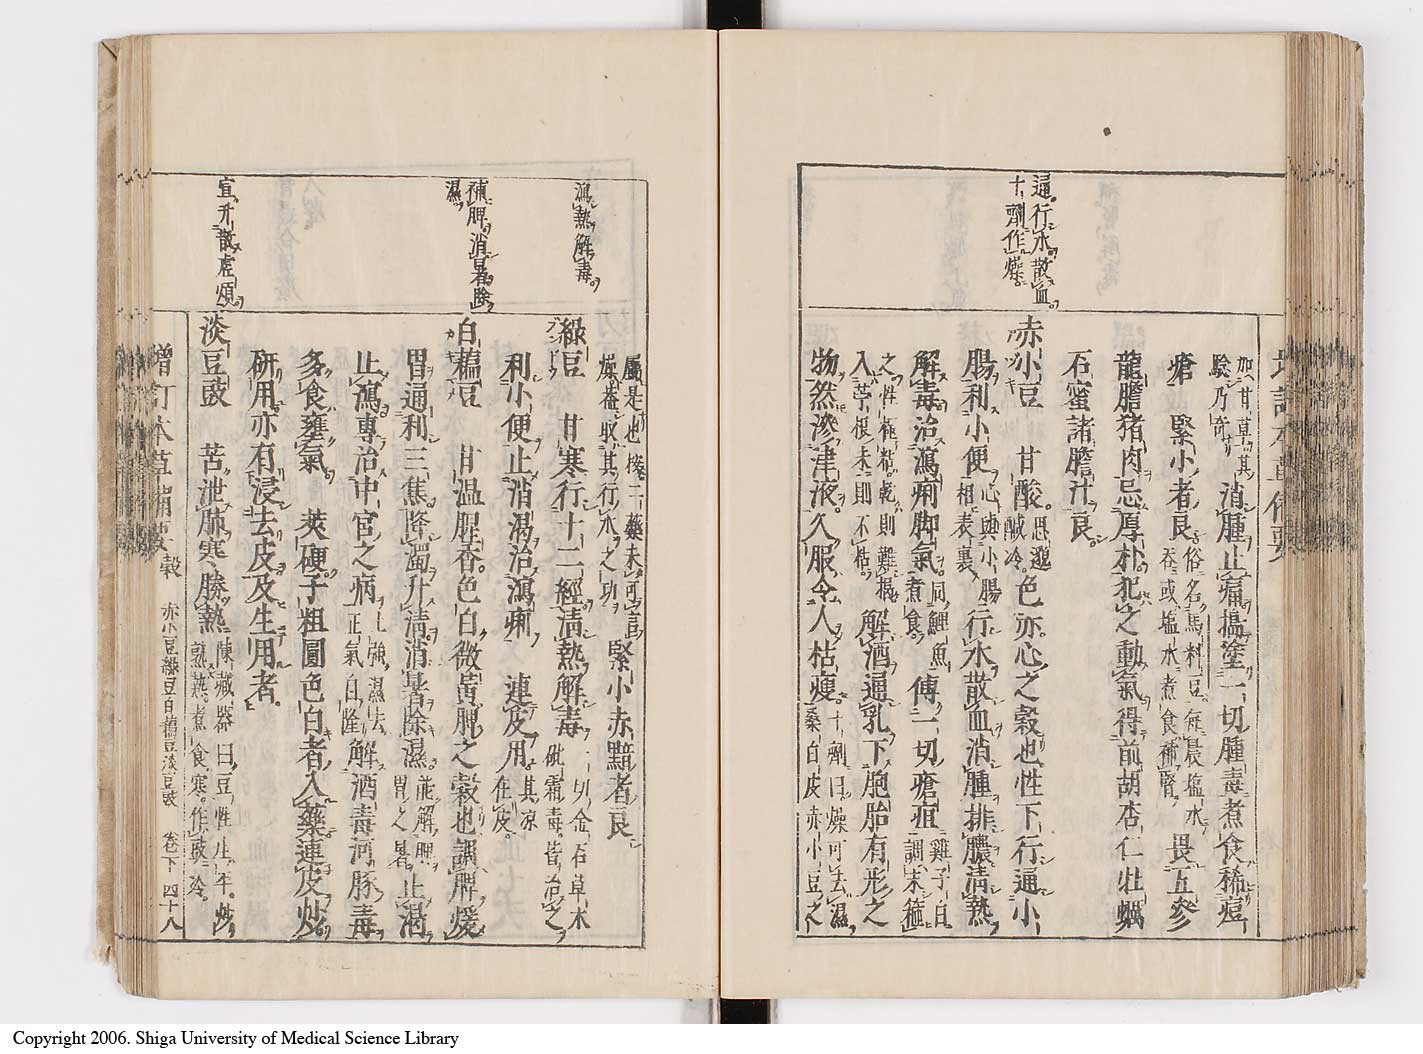 通行水散血
十劑作燥
加甘草其驗乃奇
消腫止痛搗塗一切腫毒煮食稀痘
瘡 緊小者良 俗名馬料豆每晨鹽水吞或塩水煮食補腎 畏五參
龍膽猪肉忌厚朴犯之動氣得前胡杏仁牡蠣
石蜜諸膽汁良
赤小豆 甘酸 思邈鹹冷 色赤心之穀也性下行通小
腸利小便 心與小腸相表裏 行水散血消腫排膿清熱
解毒治瀉痢脚氣 同鯉魚煮食 傅一切瘡疽 雞子白調末箍
之性極粘乾則難揭入苧根末則不粘 解酒通乳下胞胎有形之
物然滲津液久服令人枯瘦 十劑曰燥可去濕桑白皮赤小豆之
瀉熱解毒
補脾消暑除
濕
宜升散虛煩
屬是也按二藥未可言燥葢取其行水之功 緊小赤黯者良
綠豆 甘寒行十二經清熱解毒 一切金石草木砒霜毒皆治之
利小便止消渴治瀉痢 連皮用 其凉在皮
白藊豆 甘温腥香色白微黃脾之穀也調脾煖
胃通利三焦降濁升清消暑除濕 能解脾胃之暑 止渴
止瀉專治中宮之病 土強濕去正氣自隆 解酒毒河豚毒
多食壅氣 莢硬子粗圓色白者入藥連皮炒
研用亦有浸去皮及生用者
淡豆豉 苦泄肺寒勝熱 陳藏器曰豆性生平炒熟熱煮食寒作豉冷
增訂本草備要 穀 赤小豆綠豆白藊豆淡豆豉 卷下 四十八
Copyright 2006. Shiga University of Medical Science Library